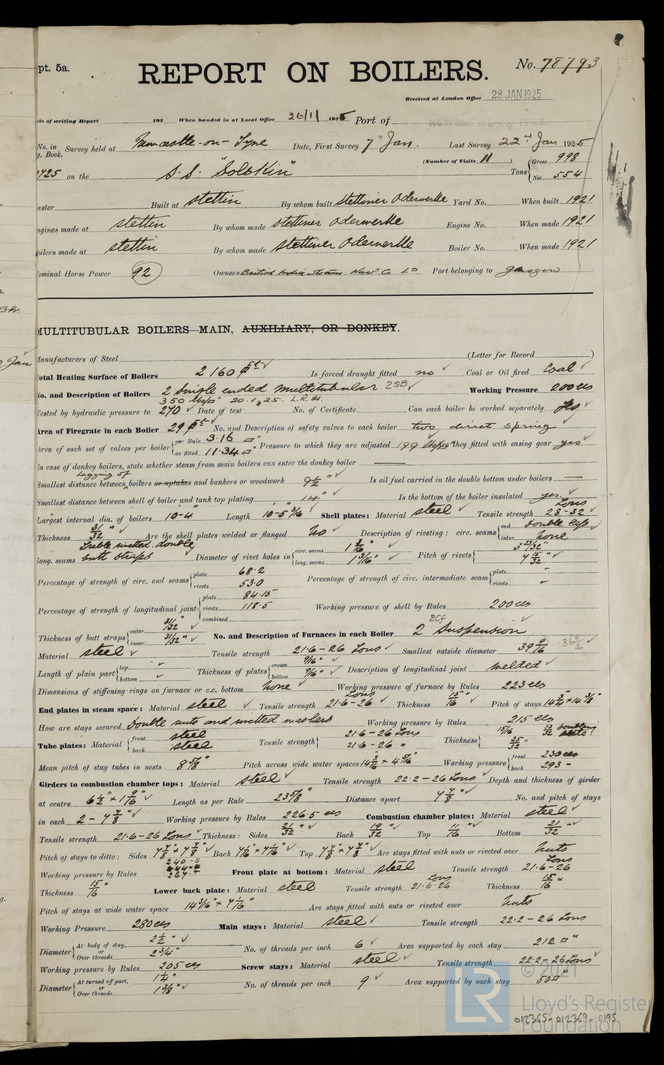 pt. 5a.
REPORT ON BOILERS.
No. 78793
Received at London Office 28 JAN 1925
te of writing Report 192 When handed in at Local Office 26/1/1925 Port of
No. in Survey held at Newcastle-on-Tyne Date, First Survey 7th Jan. Last Survey 22nd Jan 1925
g. Book. (Number of Visits 11 ) Gross 998
on the S.S. "Solokin" Tons Net 554
aster Built at Stettin By whom built Stettiner Oderwerke Yard No. When built 1921
ngines made at Stettin By whom made Stettiner Oderwerke Engine No. When made 1921
oilers made at Stettin By whom made Stettiner Oderwerke Boiler No. When made 1921
ominal Horse Power 92 Owners British India Steam Nav. Co Ld Port belonging to Glasgow
MULTITUBULAR BOILERS—MAIN, AUXILIARY, OR DONKEY.
Manufacturers of Steel (Letter for Record )
Total Heating Surface of Boilers 2160 Is forced draught fitted no Coal or Oil fired Coal
No. and Description of Boilers 2 Single ended Multitubular 2SB Working Pressure 200 lbs
Tested by hydraulic pressure to 270 Date of test No. of Certificate Can each boiler be worked separately Yes
Area of Firegrate in each Boiler 29 No. and Description of safety valves to each boiler two, direct spring
Area of each set of valves per boiler per Rule 3.16 as fitted 11.34 Pressure to which they are adjusted Are they fitted with easing gear yes
In case of donkey boilers, state whether steam from main boilers can enter the donkey boiler
Smallest distance between lagging of boilers or uptakes and bunkers or woodwork 9½" Is oil fuel carried in the double bottom under boilers
Smallest distance between shell of boiler and tank top plating 14" Is the bottom of the boiler insulated yes
Largest internal dia. of boilers 10-4 Length Shell plates: Material steel Tensile strength 28-32 Tons
Thickness 31/32" Are the shell plates welded or flanged No Description of riveting: circ. seams end Double lap inter. none
long. seams Treble riveted double butt straps Diameter of rivet holes in circ. seams long. seams 1 3/16" Pitch of rivets
Percentage of strength of circ. end seams plate 68.2 rivets 53.0 Percentage of strength of circ. intermediate seam plate rivets
Percentage of strength of longitudinal joint plate 84.15 rivets 118.5 combined Working pressure of shell by Rules 200 lbs
Thickness of butt straps outer inner No. and Description of Furnaces in each Boiler 2 Suspension
Material steel Tensile strength 21.6-26 Tons Smallest outside diameter
Length of plain part top bottom Thickness of plates crown 9/16" bottom 9/16" Description of longitudinal joint welded
Dimensions of stiffening rings on furnace or c.c. bottom none Working pressure of furnace by Rules 223 lbs
End plates in steam space: Material steel Tensile strength 21.6-26 Tons Thickness 15/16" Pitch of stays
How are stays secured Double nuts and riveted washers Working pressure by Rules 215 lbs
Tube plates: Material front steel back steel Tensile strength 21.6-26 Tons 21.6-26 " Thickness
Mean pitch of stay tubes in nests Pitch across wide water spaces Working pressure front 230 lbs back 293 "
Girders to combustion chamber tops: Material steel Tensile strength 22.2-26 Tons Depth and thickness of girder
at centre Length as per Rule Distance apart No. and pitch of stays
in each Working pressure by Rules 226.5 lbs Combustion chamber plates: Material steel
Tensile strength 21.6-26 Tons Thickness: Sides 21/32" Back Top 11/16" Bottom 21/32"
Pitch of stays to ditto: Sides Back Top Are stays fitted with nuts or riveted over Nuts
Working pressure by Rules Front plate at bottom: Material steel Tensile strength 21.6-26 Tons
Thickness 15/16" Lower back plate: Material steel Tensile strength 21.6-26 Tons Thickness 15/16"
Pitch of stays at wide water space Are stays fitted with nuts or riveted over nuts
Working Pressure 280 lbs Main stays: Material steel Tensile strength 22.2-26 Tons
Diameter At body of stay, 2½" or Over threads 2¾" No. of threads per inch 6 Area supported by each stay 212 □"
Working pressure by Rules 205 lbs Screw stays: Material steel Tensile strength 22.2-26 Tons
Diameter At turned off part, or Over threads No. of threads per inch 9 Area supported by each stay 50 □"
LR
© 2021
Lloyd's Register
Foundation
012365-012369-0195